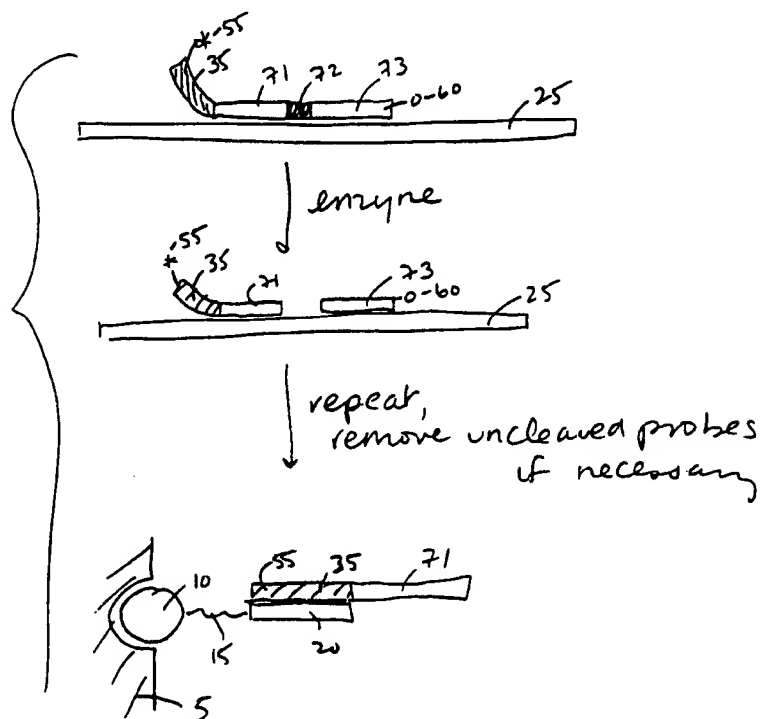 *-55
35 71 72 73
0-60 25
enzyne
*-55
35 71 73
0-60 25
repeat,
remove uncleaved probes
if necessary
10 55 35 71
15 20
5